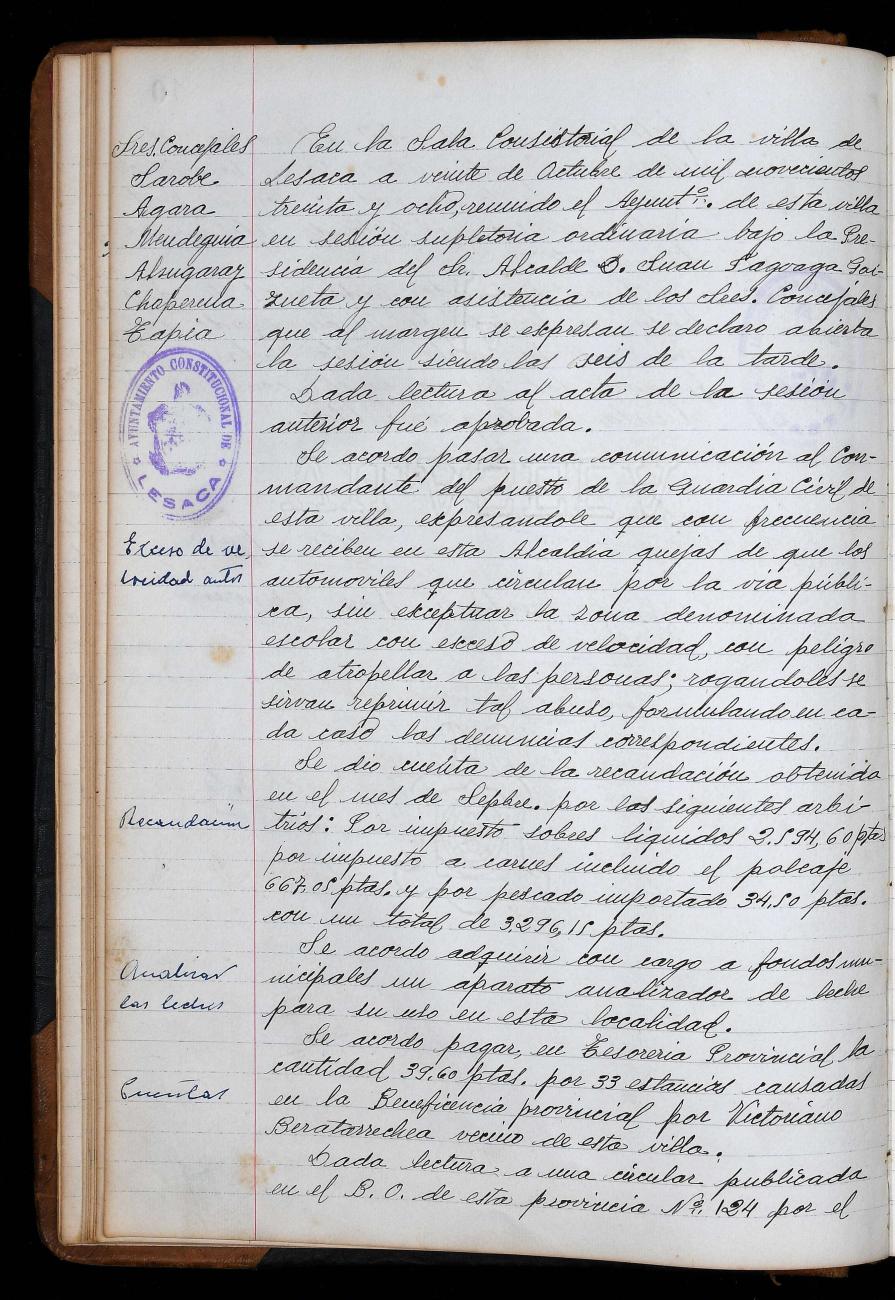 Sres. Concejales
Sarobe
Agara
Mendeguia
Alzugaray
Chaperena
Tapia
AYUNTAMIENTO CONSTITUCIONAL DE
LESACA
Exceso de ve
locidad autos
Recaudación
Analizar
las leches
Cuentas
En la Sala Consistorial de la villa de
Lesaca a veinte de Octubre de mil novecientos
treinta y ocho, reunido el Ayuntº. de esta villa
en sesión supletoria ordinaria bajo la Pre-
sidencia del Sr. Alcalde D. Juan Sagoaga Goi-
zueta y con asistencia de los Sres. Concejales
que al margen se expresan se declaro abierta
la sesión siendo las seis de la tarde.
Dada lectura al acta de la sesión
anterior fué aprobada.
Se acordo pasar una comunicación al Con-
mandante del puesto de la Guardia Civil de
esta villa, expresandole que con frecuencia
se reciben en esta Alcaldia quejas de que los
automoviles que circulan por la via públi-
ca, sin exceptuar la zona denominada
escolar con exceso de velocidad, con peligro
de atropellar a las personas; rogandoles se
sirvan reprimir tal abuso, formulando en ca-
da caso las denuncias correspondientes.
Se dio cuenta de la recaudación obtenida
en el mes de Sepbre. por los siguientes arbi-
trios: Por impuesto sobres liquidos 2.594,60 ptas
por impuesto a carnes incluido el palcaje
667,05 ptas. y por pescado importado 34,50 ptas.
con un total de 3296,15 ptas.
Se acordo adquirir con cargo a fondos mu-
nicipales un aparato analizador de leche
para su uso en esta localidad.
Se acordo pagar, en Tesoreria Provincial la
cantidad 39,60 ptas. por 33 estancias causadas
en la Beneficencia provincial por Victoriano
Beratarrechea vecino de esta villa.
Dada lectura a una circular publicada
en el B. O. de esta provincia Nº. 124 por el